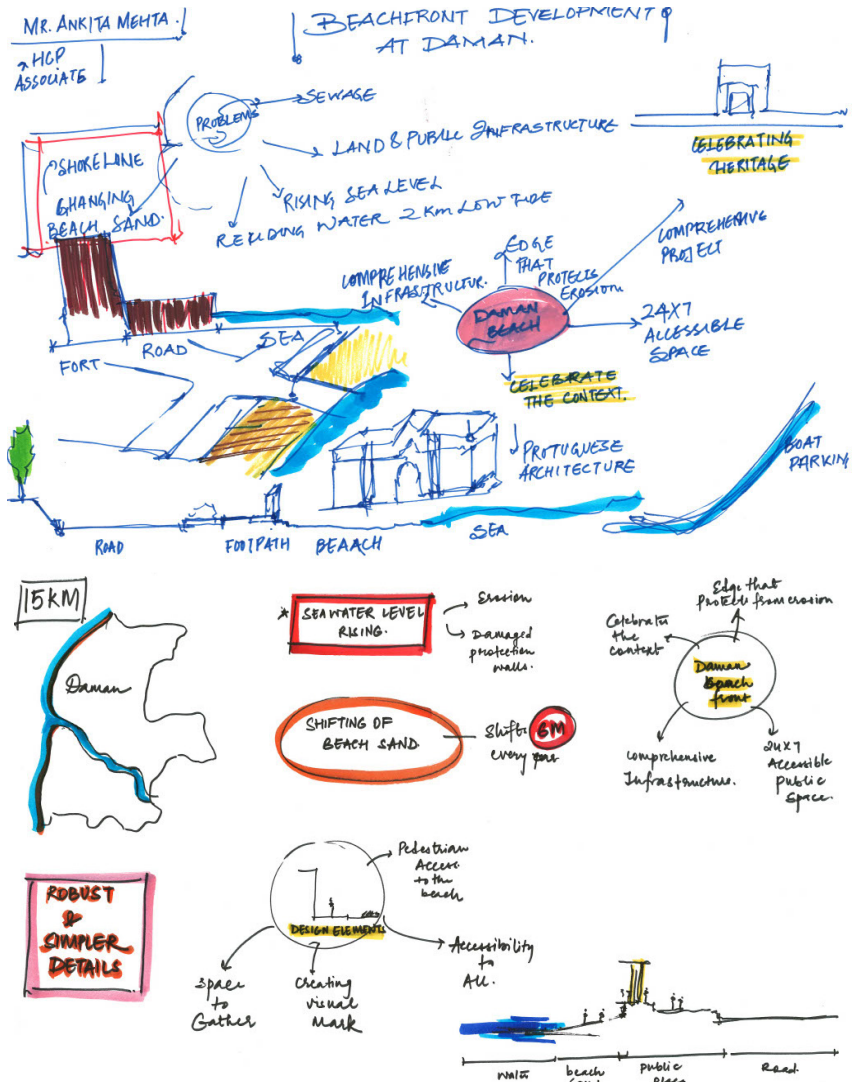 MR. ANKITA MEHTA.
HCP
ASSOCIATE
BEACHFRONT DEVELOPMENT
AT DAMAN.
PROBLEMS
SEWAGE
LAND & PUBLIC INFRASTRUCTURE
RISING SEA LEVEL
WATER 2 KM LOW TIDE
SHORE LINE
CHANGING
BEACH SAND.
CELEBRATING
HERITAGE
COMPREHENSIVE
PROJECT
EDGE
THAT
PROTECTS
EROSION
COMPREHENSIVE
INFRASTRUCTUR.
DAMAN
BEACH
24X7
ACCESSIBLE
SPACE
CELEBRATE
THE CONTEXT.
PROTUGUESE
ARCHITECTURE
FORT
ROAD
SEA
BOAT
PARKING
ROAD
FOOTPATH
BEAACH
SEA
15KM
Daman
* SEA WATER LEVEL
RISING.
Erosion
Damaged
protection
walls.
SHIFTING OF
BEACH SAND.
Shifts 6M
every year
Edge that
Protects from erosion
Celebrates
the
context
Daman
Beach
front
comprehensive
Infrastructure.
24X7
Accessible
Public
Space.
ROBUST
&
SIMPLER
DETAILS
DESIGN ELEMENTS
Pedestrian
Access
to the
beach
Accessibility
to
ALL.
Space
to
Gather
Creating
visual
Mark
water
beach
public
place
Road.